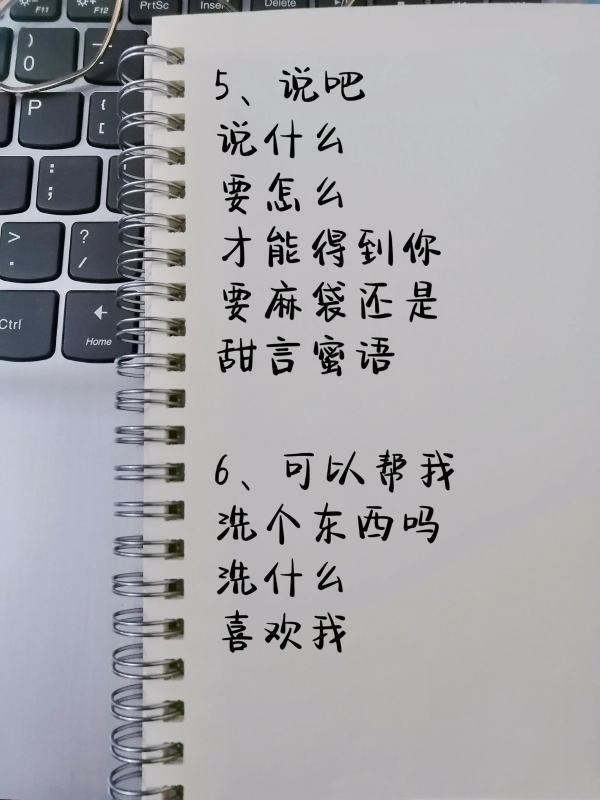 F11
F12
PrtSc
Insert
Delete
)
0
P
{
[
:
;
>
.
?
/
Ctrl
Home
5、说吧
说什么
要怎么
才能得到你
要麻袋还是
甜言蜜语
6、可以帮我
洗个东西吗
洗什么
喜欢我